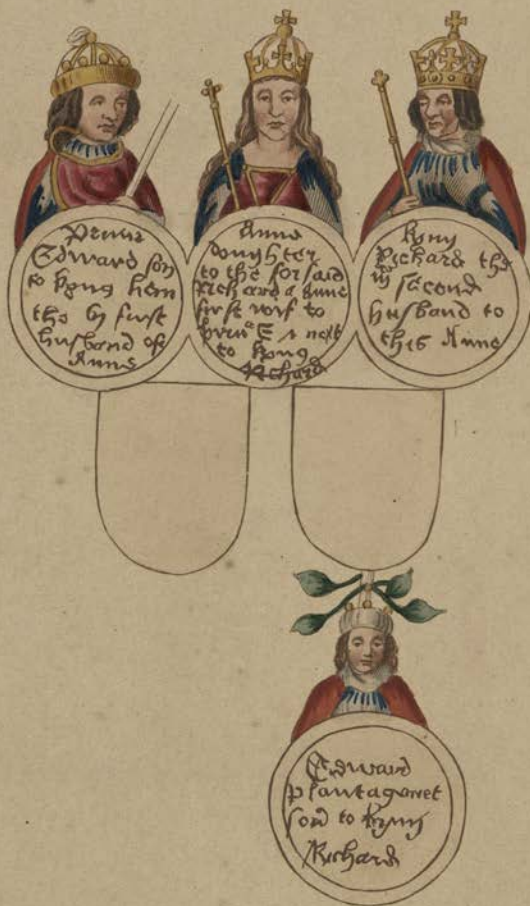 Prince
Edward son
to kyng Henri
the vj first
husband of
Anne
Anne
doughter
to the forsaid
Richard & Anne
first wif to
prince E & next
to kyng
Richard
kyng
Richard the
iij second
husband to
this Anne
Edward
plantagenet
son to kyng
Richard